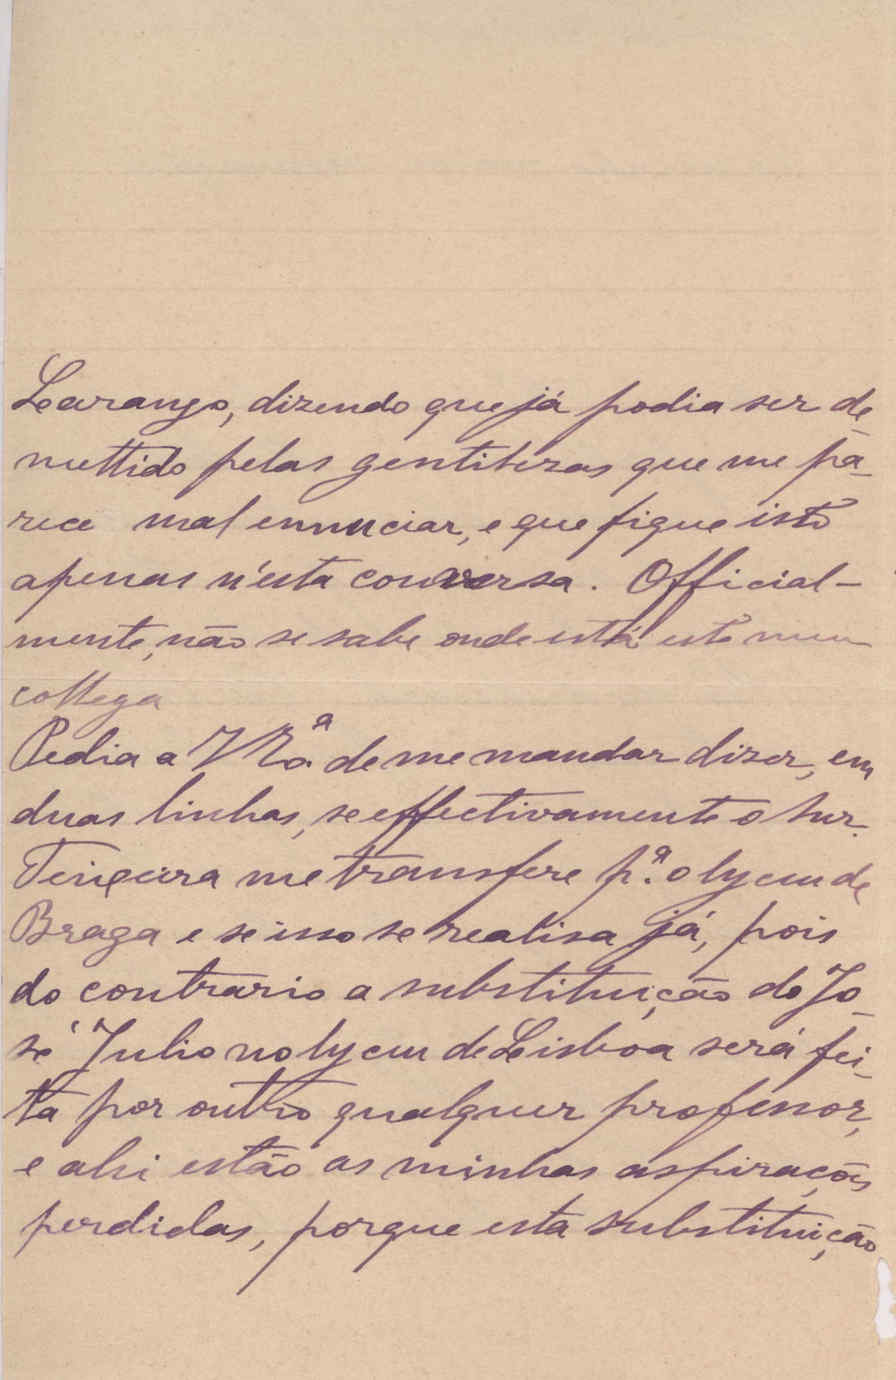 Laranjo, dizendo que já podia ser de-
mettido pelas gentilezas que me pa-
rece mal ennunciar, e que fique isto
apenas n'esta conversa. Official-
mente, não se sabe onde está este meu
collega
Pedia a V Exª de me mandar dizer, em
duas linhas, se effectivamente o Snr.
Teixeira me transfere p.ª o lyceu de
Braga e se isso se realisa já, pois
do contrario a substituição do Jo-
sé Julio no lyceu de Lisboa será fei-
ta por outro qualquer professor,
e ahi estão as minhas aspirações
perdidas, porque esta substituição